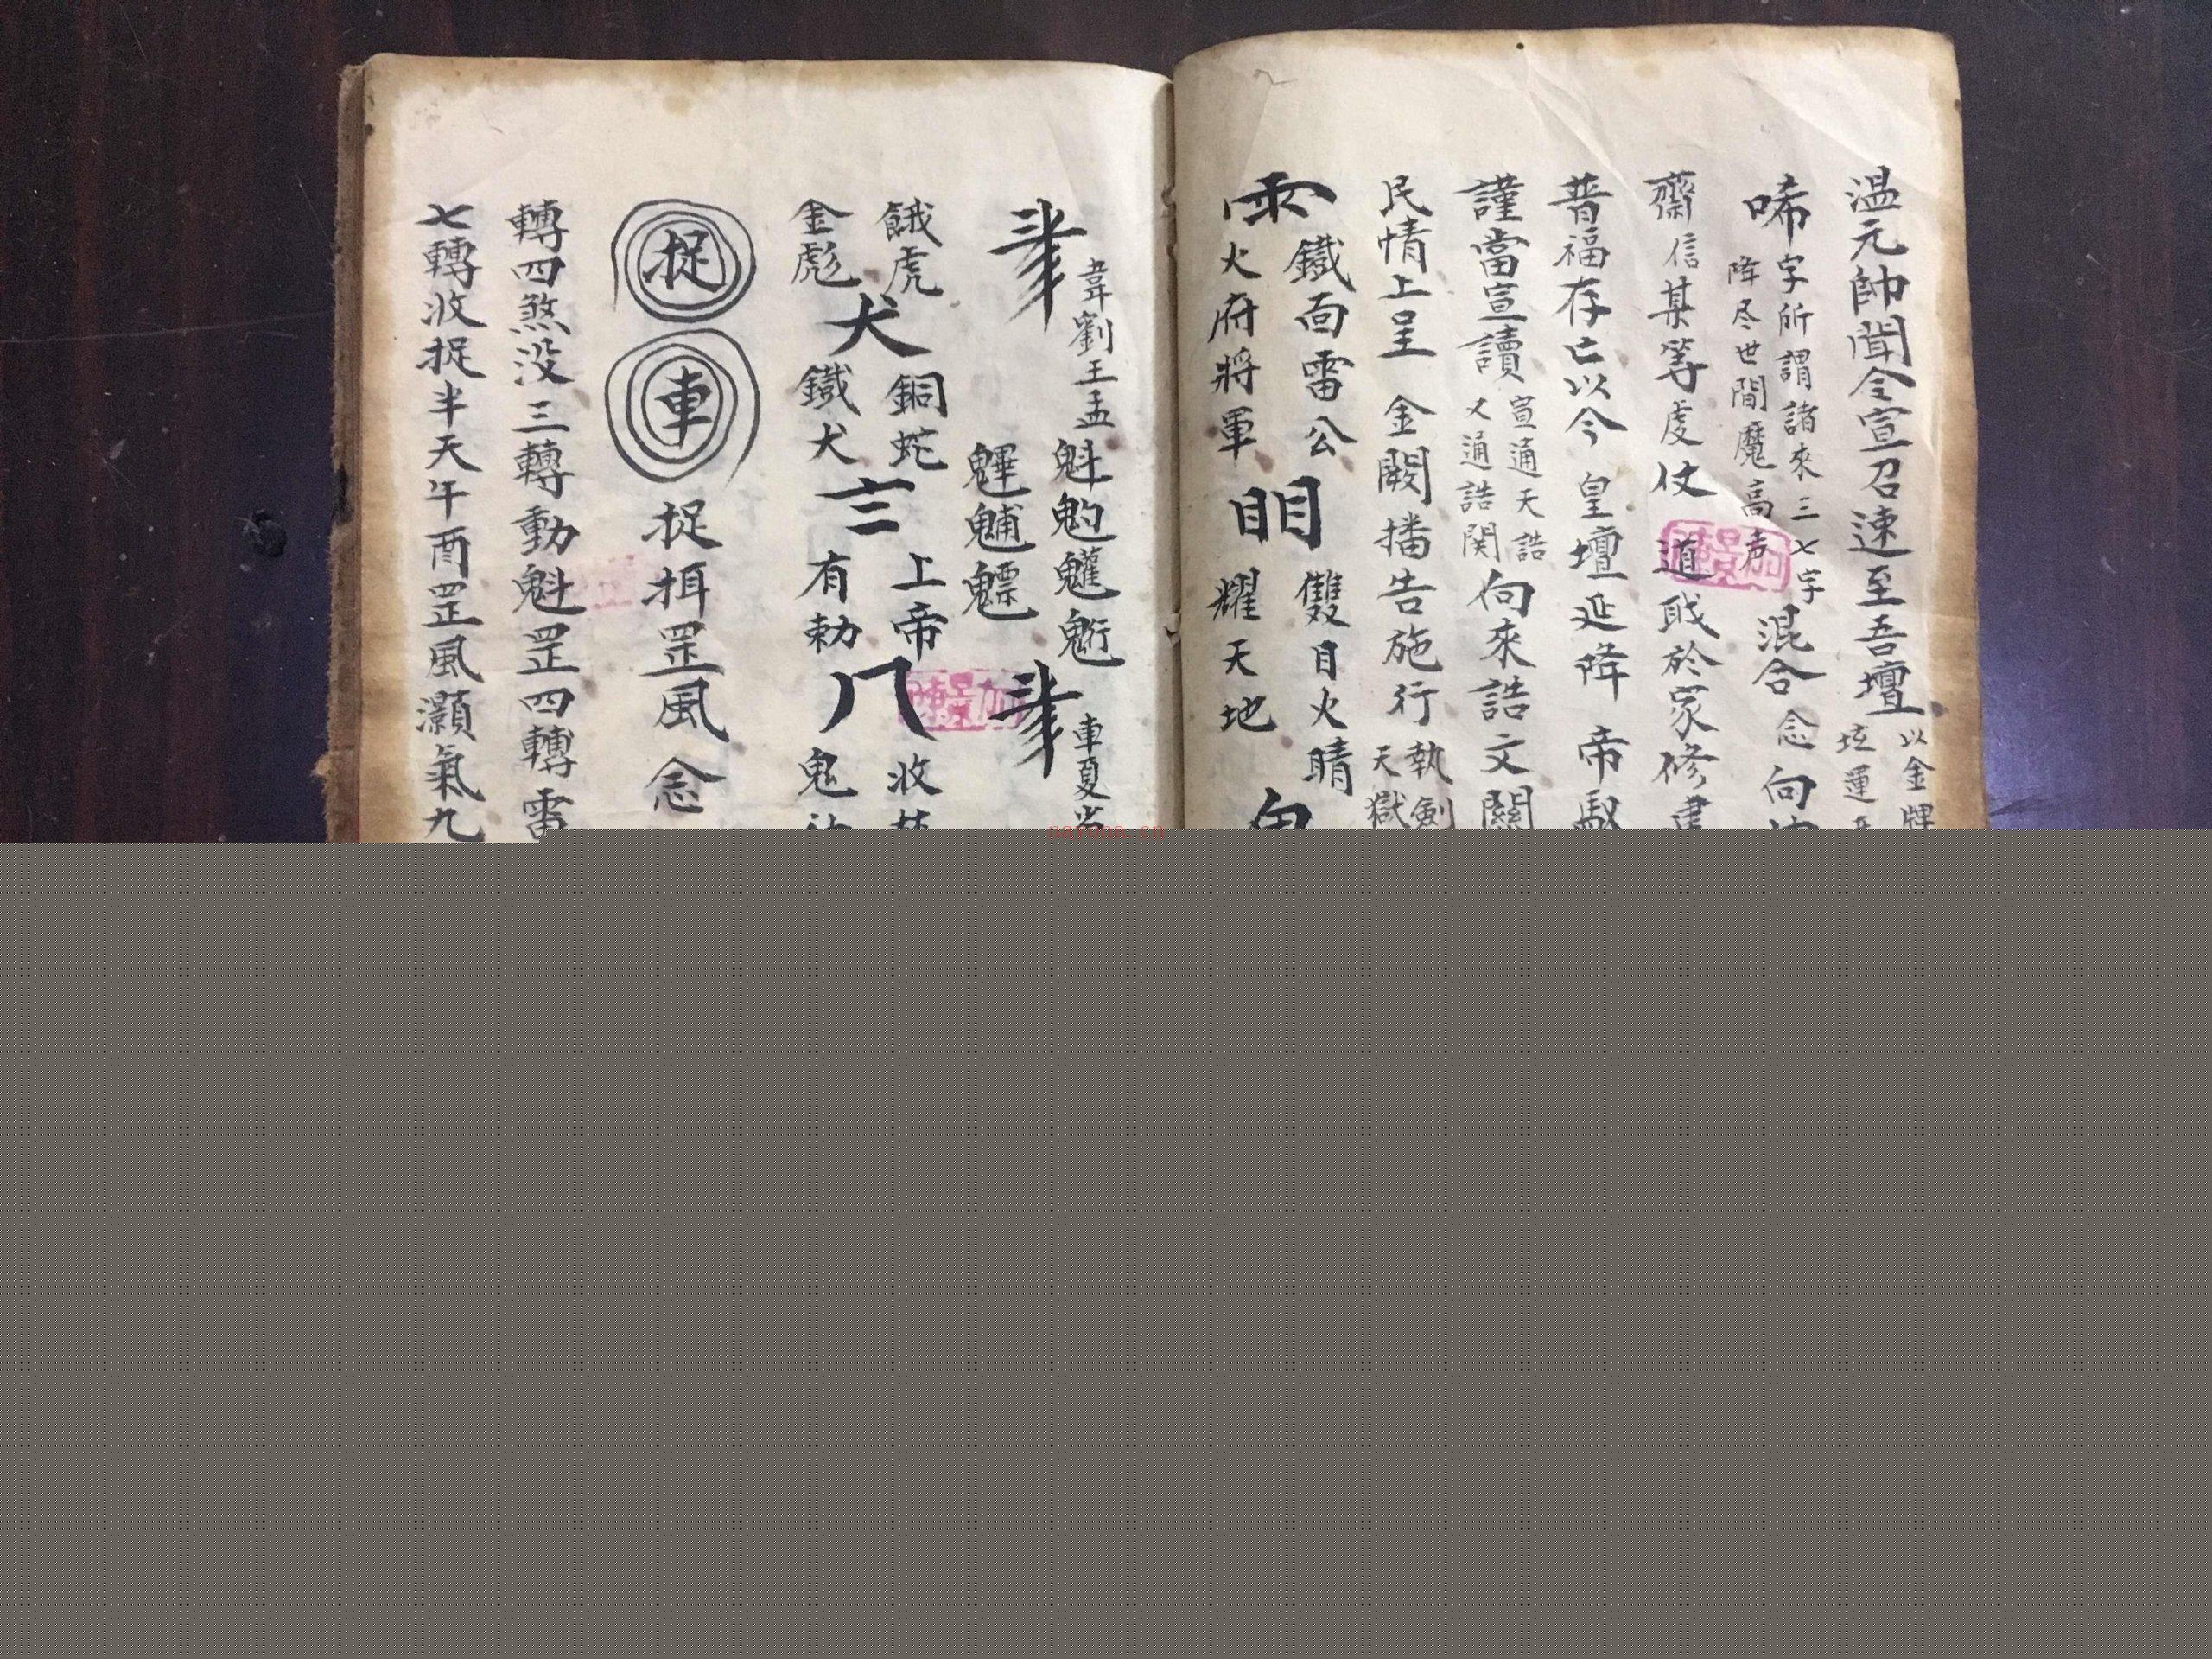 溫元帥聞令宣召速至吾壇
以金牌
運
唏字所謂諸來三七字
降尽世間魔高声
混合念向
齋信某等虔仗道戢於家修建
普福存亡以今皇壇延降帝馭
謹當宣讀
宣通天誥
又通誥関
向來誥文關
民情上呈金闕播告施行
執劍
天獄
鐵面雷公
火府將軍
明
雙目火睛
耀天地
韋劉王孟
車夏
餓虎
金彪
犬
銅蛇
鐵犬
上帝
有勅
八
收
鬼
捉
車
捉
罡風念
轉四煞没三轉動魁罡四轉雷
七轉收捉半天午酉罡風灝氣九
nayona.cn